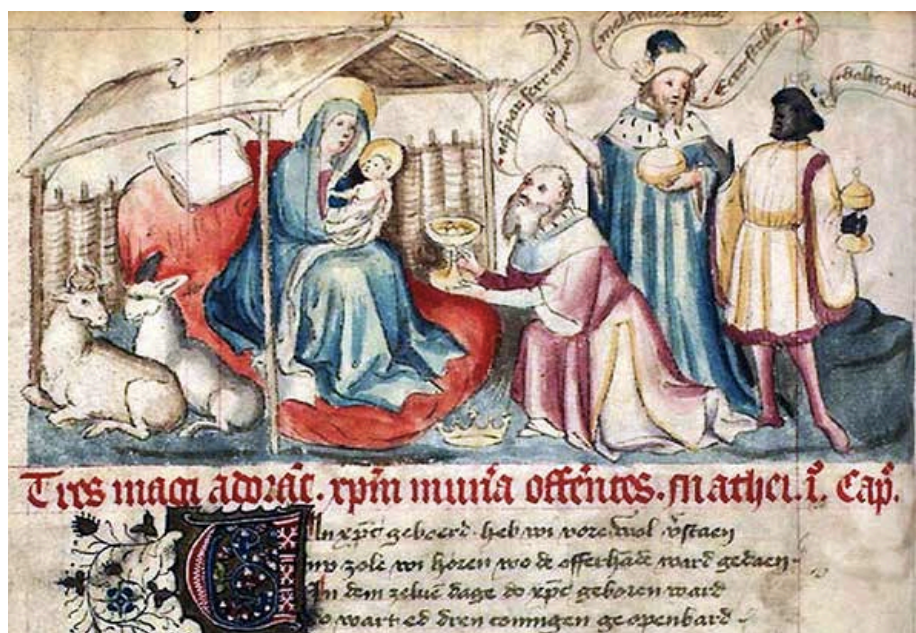 Ecce stella
baltezar
Tres magi adorāt. xp̄m mun̄ia offēntes. Mathei. i°. Cap°.
Uan xp̄c geboerd heb wi vore wol v̄staen
nw zole wi horen wo de offerhāde ward gedaen
In dem zelue dage do xp̄c geboren ward
do wart ed dren conningen geopenbard